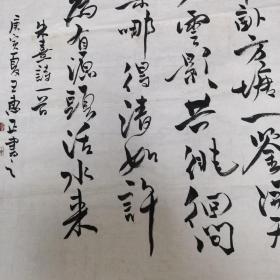 畝方塘一鑒開天
雲影共徘徊问
渠哪得清如許
為有源頭活水来
朱熹詩一首
庚寅夏王惠正書